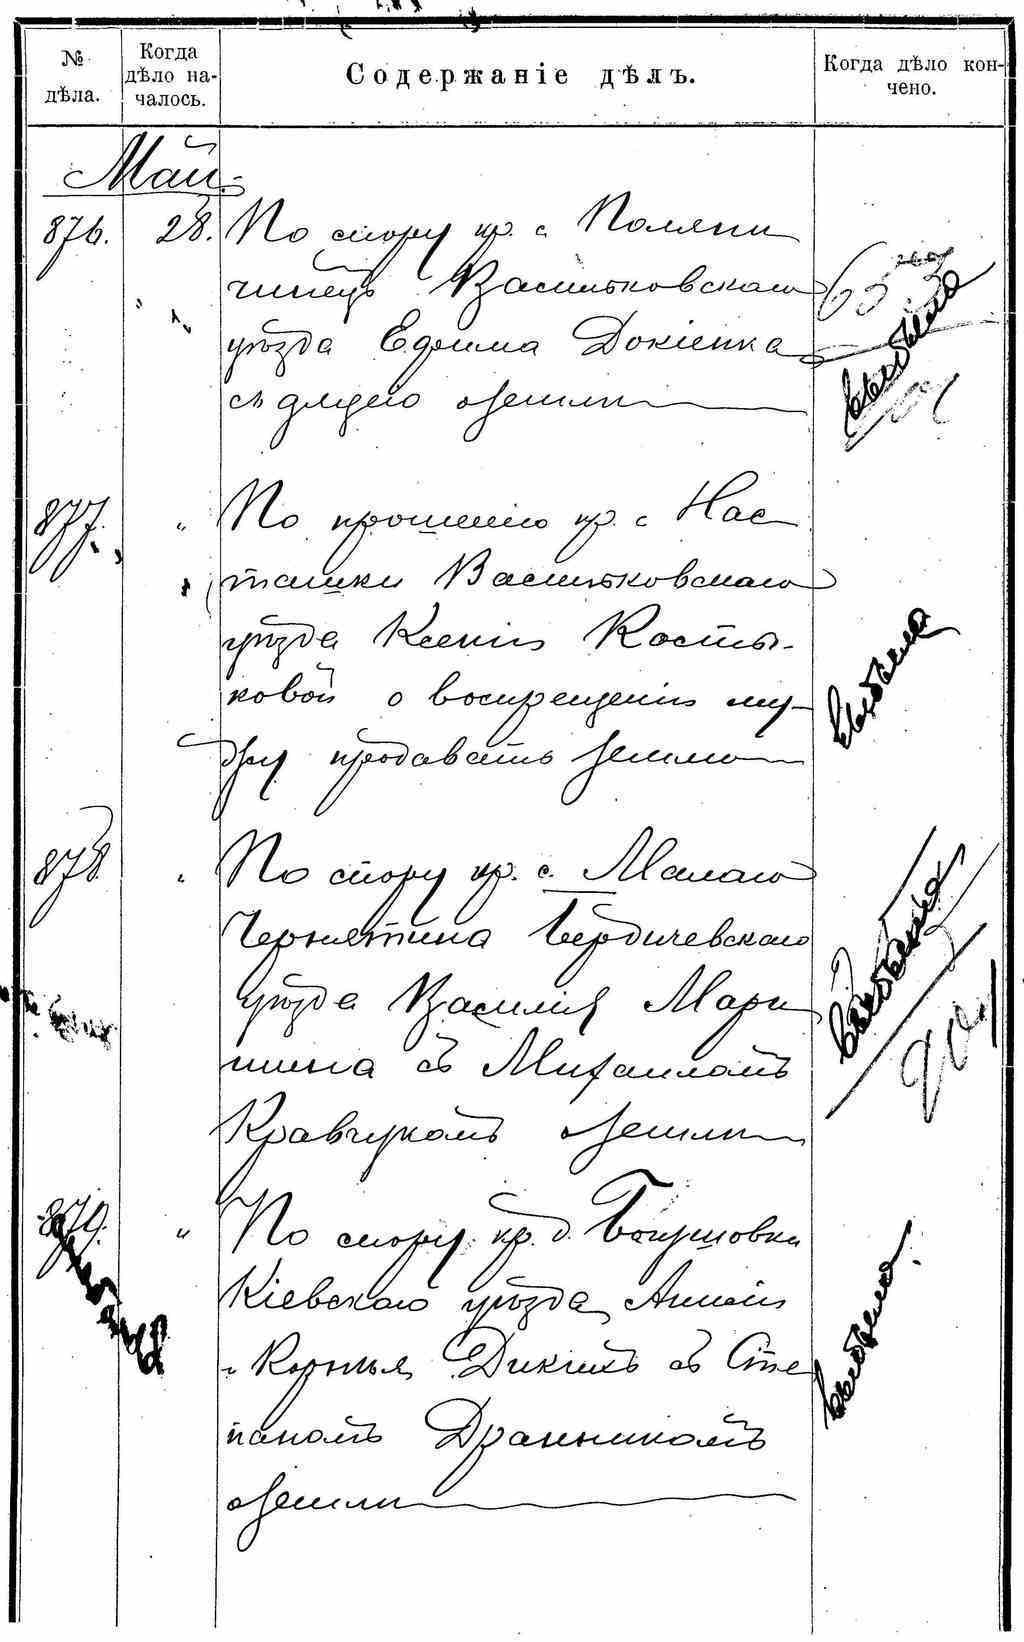 № дѣла.
Когда дѣло началось.
Содержаніе дѣлъ.
Когда дѣло кончено.
Май.
876. 28. По спору кр. с. Поляни
чинецъ Васильковскаго
уѣзда Ефима Докіенка
съ дядею о земли
выбыла
877. " По прошенію кр. с. Нас
ташки Васильковскаго
уѣзда Ксеніи Косты-
ковой о воспрещеніи му-
жу продавать землю
выбыла
878 " По спору кр. с. Малаго
Чернятина Бердичевскаго
уѣзда Василія Мари
нина съ Михаиломъ
Кравчукомъ о земли
879. " По спору кр. д. Богушовки
Кіевскаго уѣзда Анны
и Корнія Дикихъ съ Сте
паномъ Дранникомъ
о земли
выбыла.